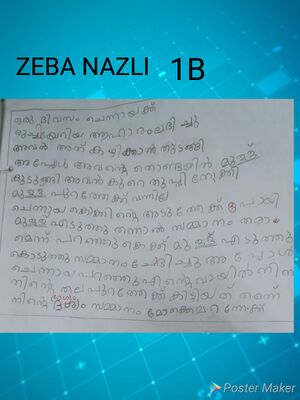 ZEBA NAZLI 1B
ഒരു ദിവസം ചെന്നായക്ക്
രുചയേറിയ ആഹാരംലഭിച്ചു
അവൻ അത് കഴിക്കാൻ തുടങ്ങി
അപ്പോൾ അവന്റെ തൊണ്ടയിൽ മുള്ള്
കുടുങ്ങി അവൻ കുറെ തുപ്പി നോക്കി
മുള്ള് പുറത്തേക്ക് വന്നില്ല
ചെന്നായ കൊക്കിന്റെ അടുത്തേക്ക് പോയി
മുള്ള് എടുത്തു തന്നാൽ സമ്മാനം തരാ
മെന്ന് പറഞ്ഞു കൊക്ക് മുള്ള് എടുത്തു
കൊടുത്തു സമ്മാനം ചോദിച്ചു അപ്പോൾ
ചെന്നായ പറഞ്ഞു എന്റെ വായിൽ നിന്ന
നിന്റെ തല പുറത്തേക്ക് കിട്ടിയത് തന്നെ
നിന്റെ ഭാഗ്യം സമ്മാനം
Poster Maker